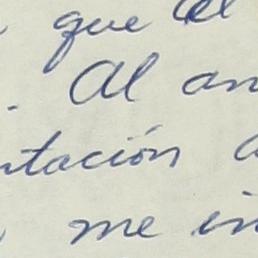 que el
. Al an
ntación a
me in